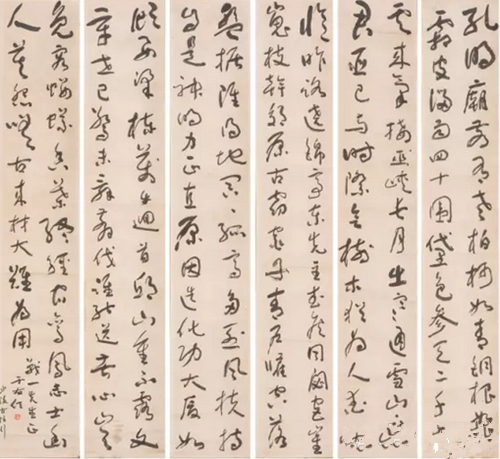 孔明廟前有老柏柯如青銅根如石
霜皮溜雨四十圍黛色參天二千尺
雲來氣接巫峽長月出寒通雪山白
君臣已與時際會樹木猶為人愛惜
憶昨路遶錦亭東先主武侯同閟宮崔
嵬枝幹郊原古窈窕丹青戶牖空落〻
盤據雖得地冥〻孤高多烈風扶持
自是神明力正直原因造化功大廈如
傾要梁棟萬牛迴首邱山重不露文
章世已驚未辭翦伐誰能送苦心豈
免容螻蟻香葉終經宿鸞鳳志士幽
人莫怨嗟古來材大難為用
一先生正
于右任